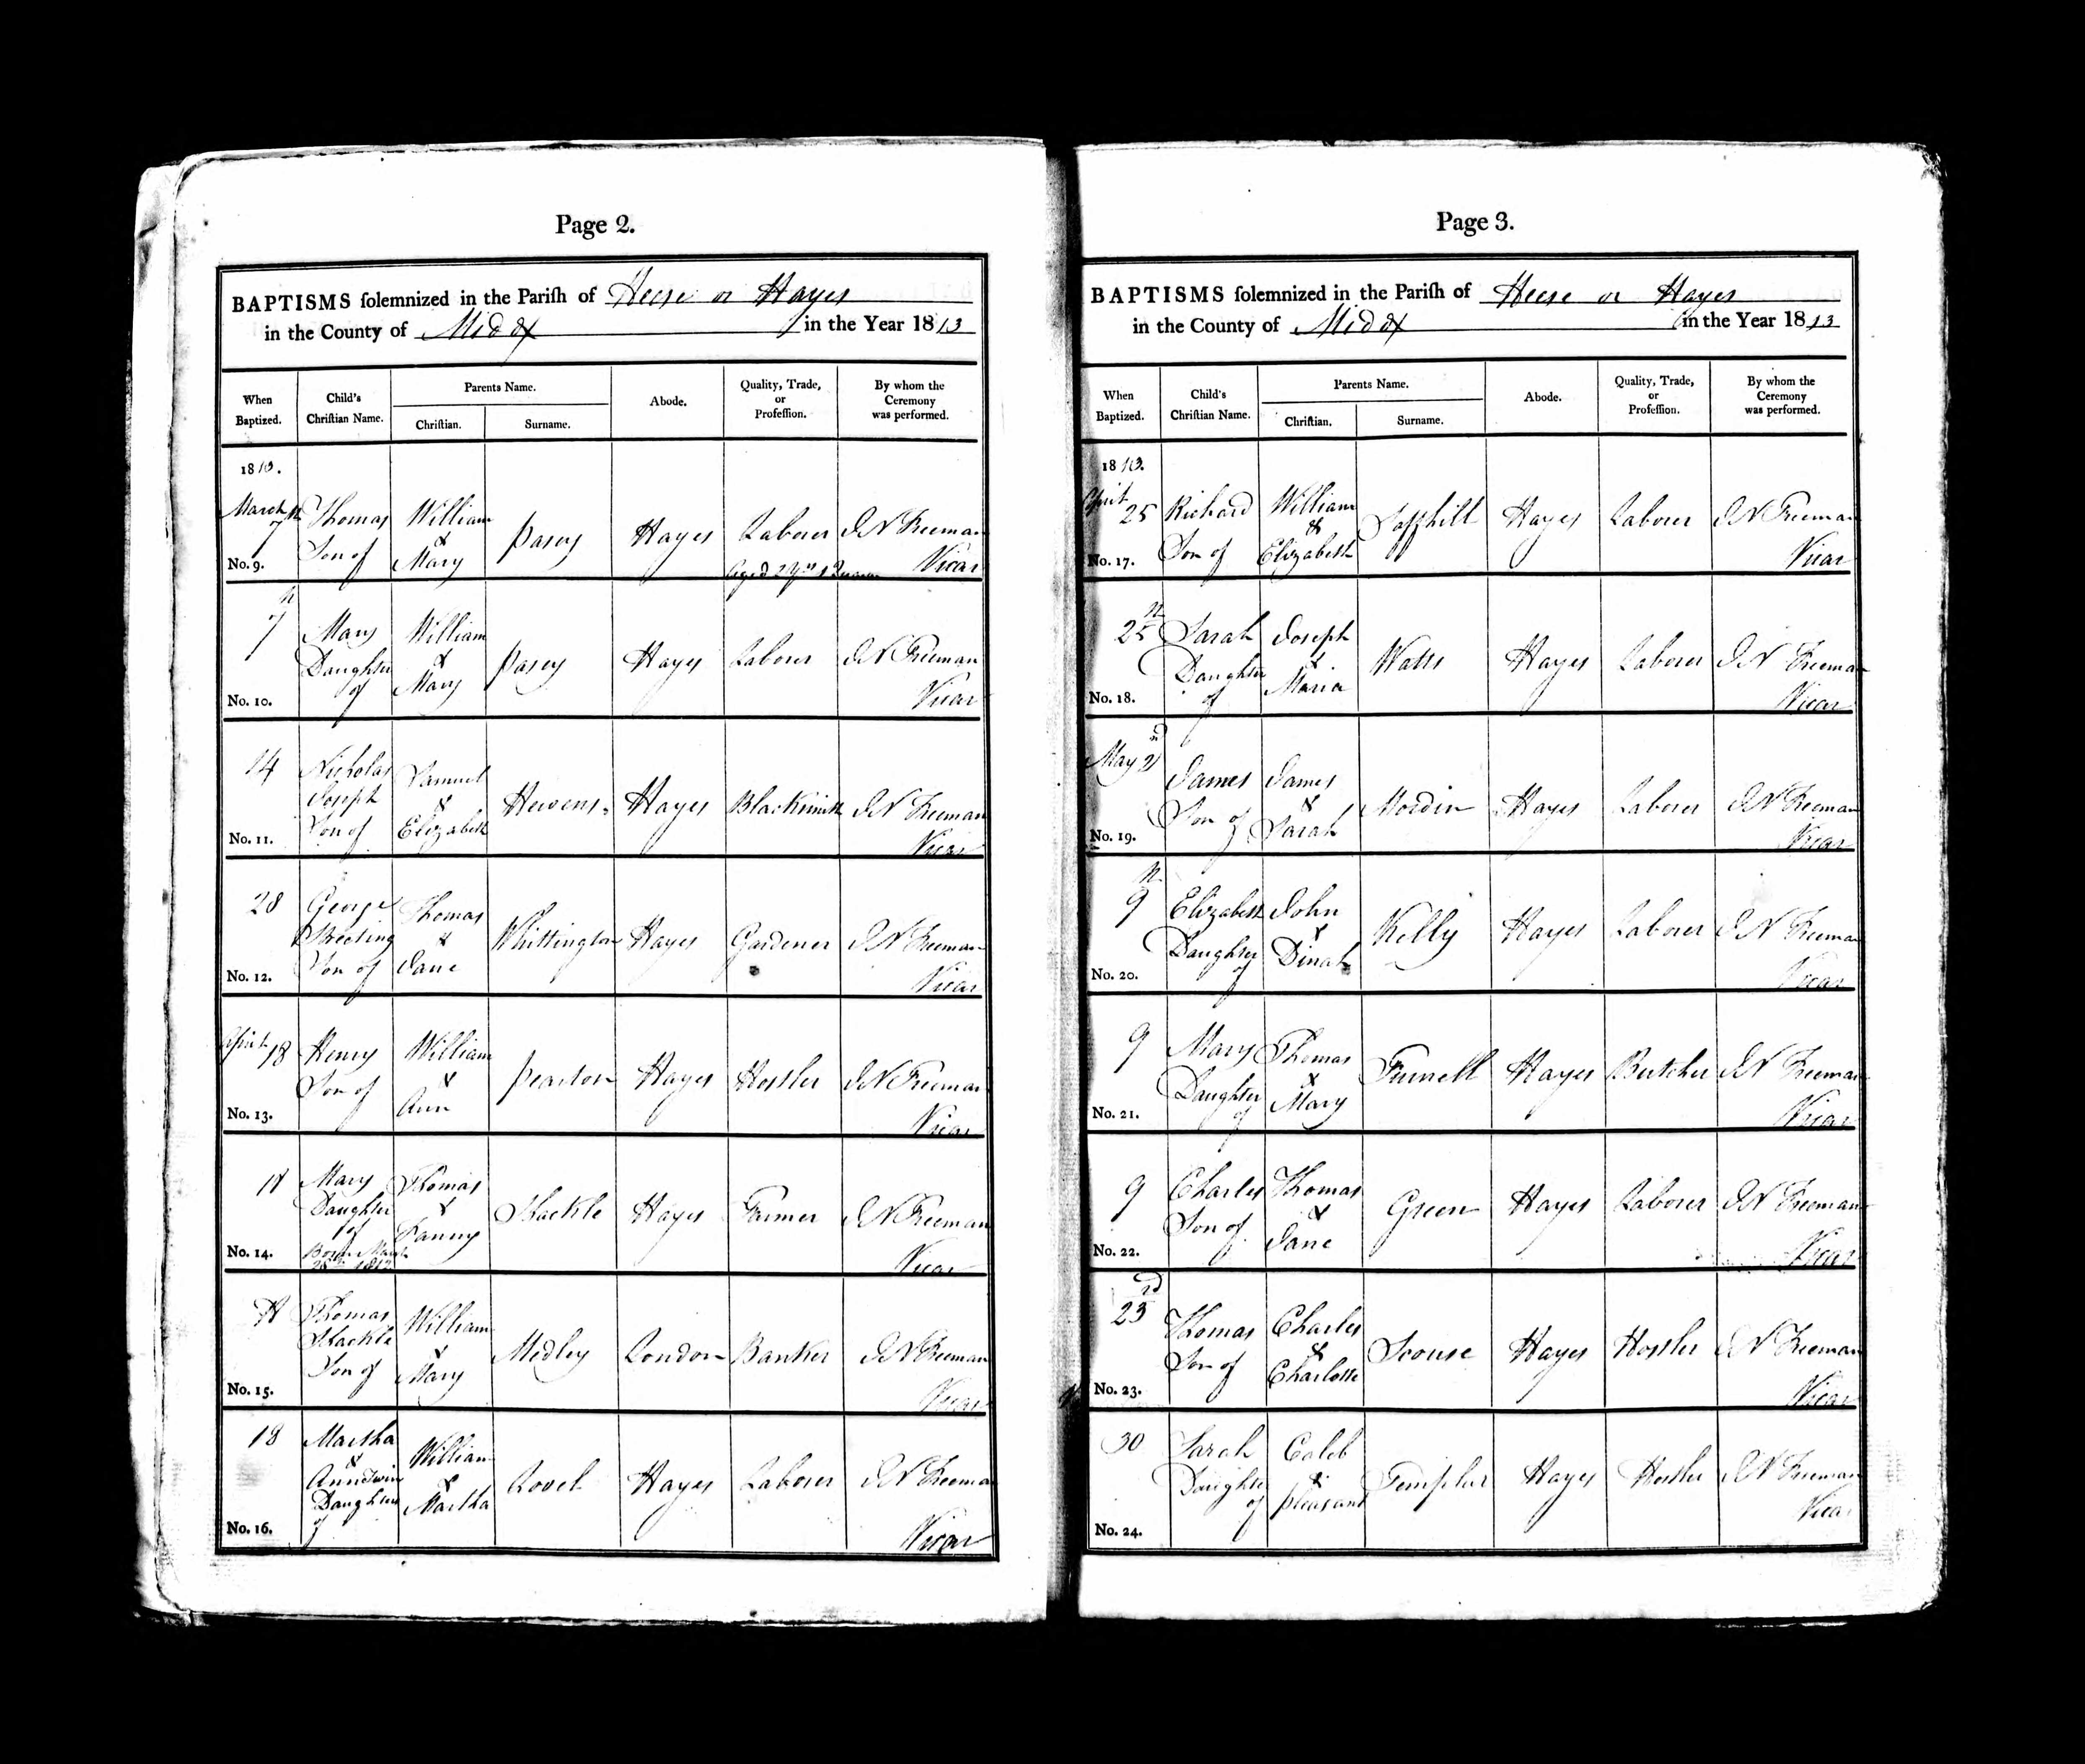 Page 2.
BAPTISMS solemnized in the Parish of Heese or Hayes
in the County of Middx in the Year 1813
When Baptized. Child's Christian Name. Parents Name. Christian. Surname. Abode. Quality, Trade, or Profession. By whom the Ceremony was performed.
1813.
March 7th Thomas Son of William & Mary Pasey Hayes Laborer J N Freeman Vicar
No. 9.
Aged 2 yrs
7th Mary Daughter of William & Mary Pasey Hayes Laborer J N Freeman Vicar
No. 10.
14 Nicholas Joseph Son of Samuel & Elizabeth Hewens Hayes Blacksmith J N Freeman Vicar
No. 11.
28 George Son of Thomas & Jane Whittington Hayes Gardener J N Freeman Vicar
No. 12.
April 18 Henry Son of William & Ann Pearton Hayes Hostler J N Freeman Vicar
No. 13.
18 Mary Daughter of Thomas & Fanny Stackle Hayes Farmer J N Freeman Vicar
Born March 28th 1812
No. 14.
Thomas Stackle Son of William & Mary Medley London Banker J N Freeman Vicar
No. 15.
18 Martha & Ann Twin Daughters of William & Martha Lovel Hayes Laborer J N Freeman Vicar
No. 16.
Page 3.
BAPTISMS solemnized in the Parish of Heese or Hayes
in the County of Middx in the Year 1813
When Baptized. Child's Christian Name. Parents Name. Christian. Surname. Abode. Quality, Trade, or Profession. By whom the Ceremony was performed.
1813.
April 25 Richard Son of William & Elizabeth Hayes Laborer J N Freeman Vicar
No. 17.
25th Sarah Daughter of Joseph & Maria Watts Hayes Laborer J N Freeman Vicar
No. 18.
May 2d James Son of James & Sarah Mordin Hayes Laborer J N Freeman Vicar
No. 19.
9th Elizabeth Daughter of John & Dinah Kelly Hayes Laborer J N Freeman Vicar
No. 20.
9 Mary Daughter of Thomas & Mary Furnell Hayes Butcher J N Freeman Vicar
No. 21.
9 Charles Son of Thomas & Jane Green Hayes Laborer J N Freeman Vicar
No. 22.
23rd Thomas Son of Charles & Charlotte Scouse Hayes Hostler J N Freeman Vicar
No. 23.
30 Sarah Daughter of Caleb & Pleasant Templar Hayes Hostler J N Freeman Vicar
No. 24.